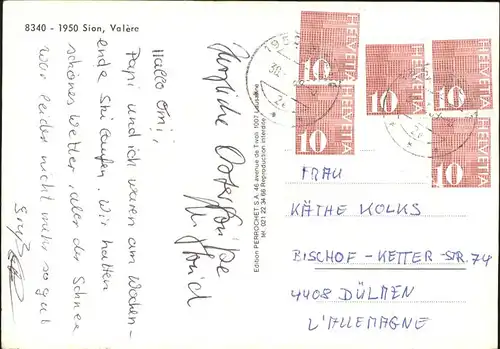 8340 - 1950 Sion, Valère
Hallo Omi,
Papi und ich waren am Wochen-
ende Ski laufen. Wir hatten
schönes Wetter, aber der Schnee
war leider nicht mehr so gut
Gruß
Herzliche Ostergrüße
Edition PERROCHET S.A. 46 avenue de Tivoli 1007 Lausanne
tél. 021 22 34 66 Reproduction interdite
HELVETIA
10
HELVETIA
10
HELVETIA
10
HELVETIA
10
HELVETIA
10
FRAU
KÄTHE KOLKS
BISCHOF-KETTER-STR. 74
4408 DÜLMEN
L'ALLEMAGNE